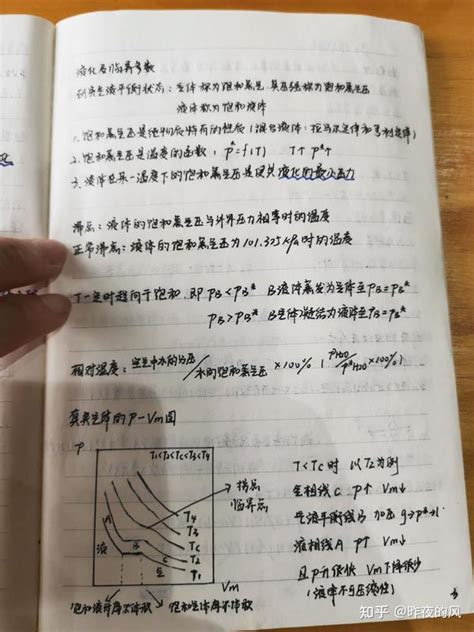 液化及临界参数
到达气液平衡状态：气体称为饱和蒸气，其压强称为饱和蒸气压
液体称为饱和液体
1、饱和蒸气压是纯物质特有的性质（混合液体：拉乌尔定律和亨利定律）
2、饱和蒸气压是温度的函数：p*=f(T) T↑ p*↑
3、液体在某一温度下的饱和蒸气压是使其液化的最小压力
沸点：液体的饱和蒸气压与外界压力相等时的温度
正常沸点：液体的饱和蒸气压为101.325kPa时的温度
T一定时趋向于饱和，即PB<PB* B液体蒸发为气体至PB=PB*
PB>PB* B气体凝结为液体至PB=PB*
相对湿度：空气中水的分压/水的饱和蒸气压×100% (PH2O/P*H2O×100%)
真实气体的P-Vm图
P
T1<T2<Tc<T3<T4
拐点
临界点
T4
T3
Tc
T2
T1
A
B
C
液
气
Vm
饱和液体摩尔体积 饱和气体摩尔体积
T<Tc时 以T2为例
气相线C p↑ Vm↓
气液平衡线B 加压 g→p*→l
液相线A p↑ Vm↓
且p升很快 Vm下降很少
（液体不易压缩性）
知乎 @昨夜的风